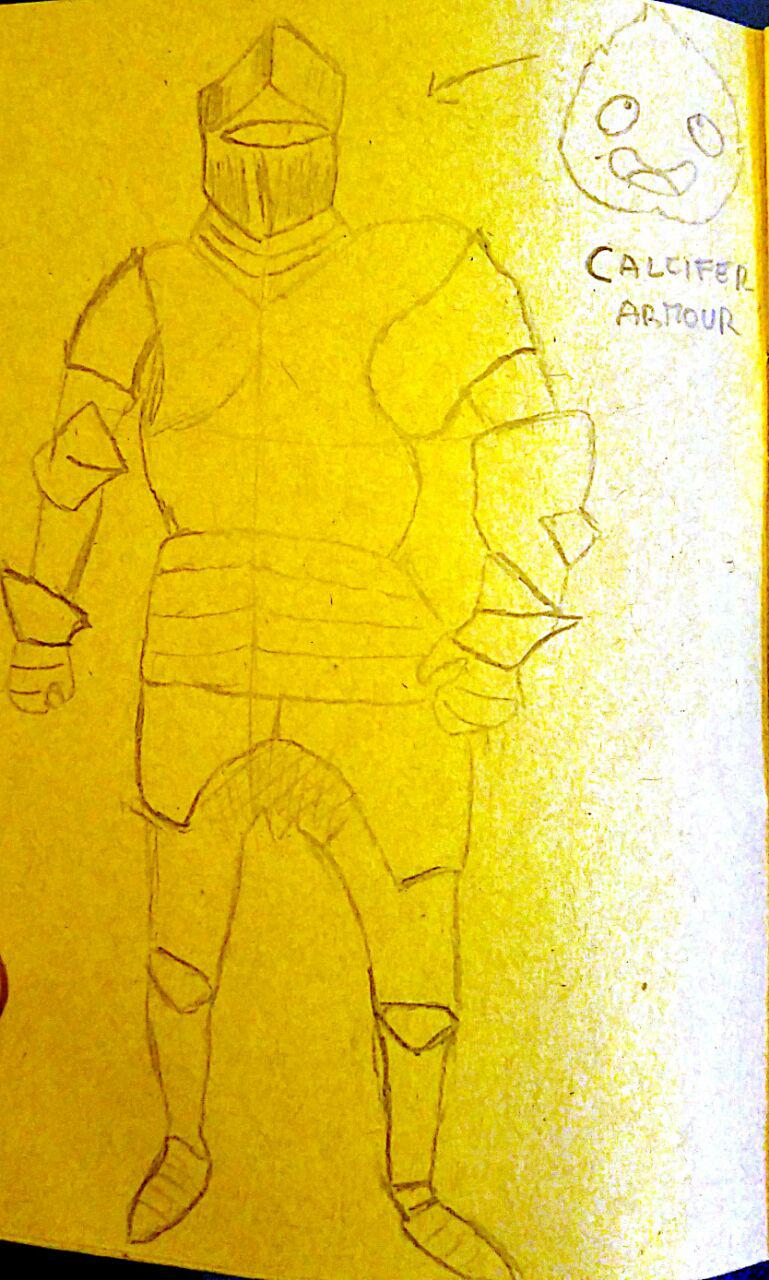 CALCIFER
ARMOUR